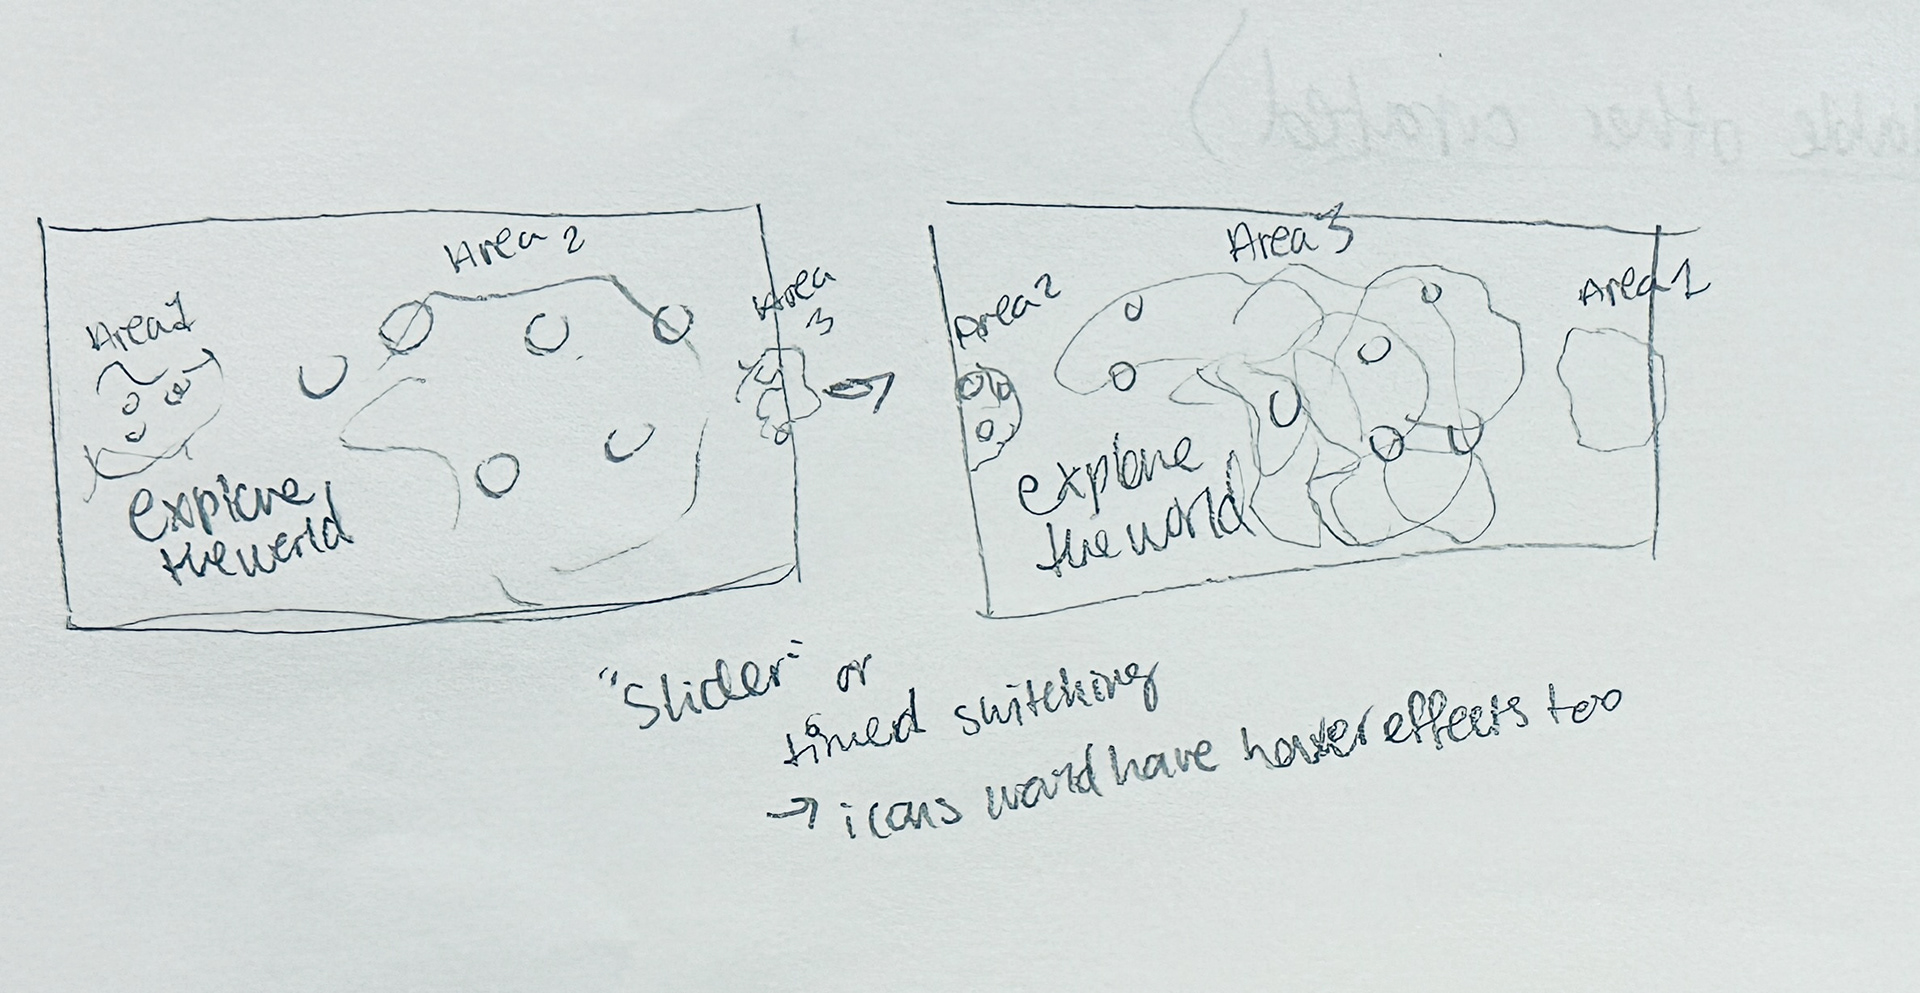 Area 2
Area 1
Area
3
explore
the world
Area 3
Area 2
Area 1
explore
the world
"Slider" or
timed switching
→ icons would have hover effects too
other curated)